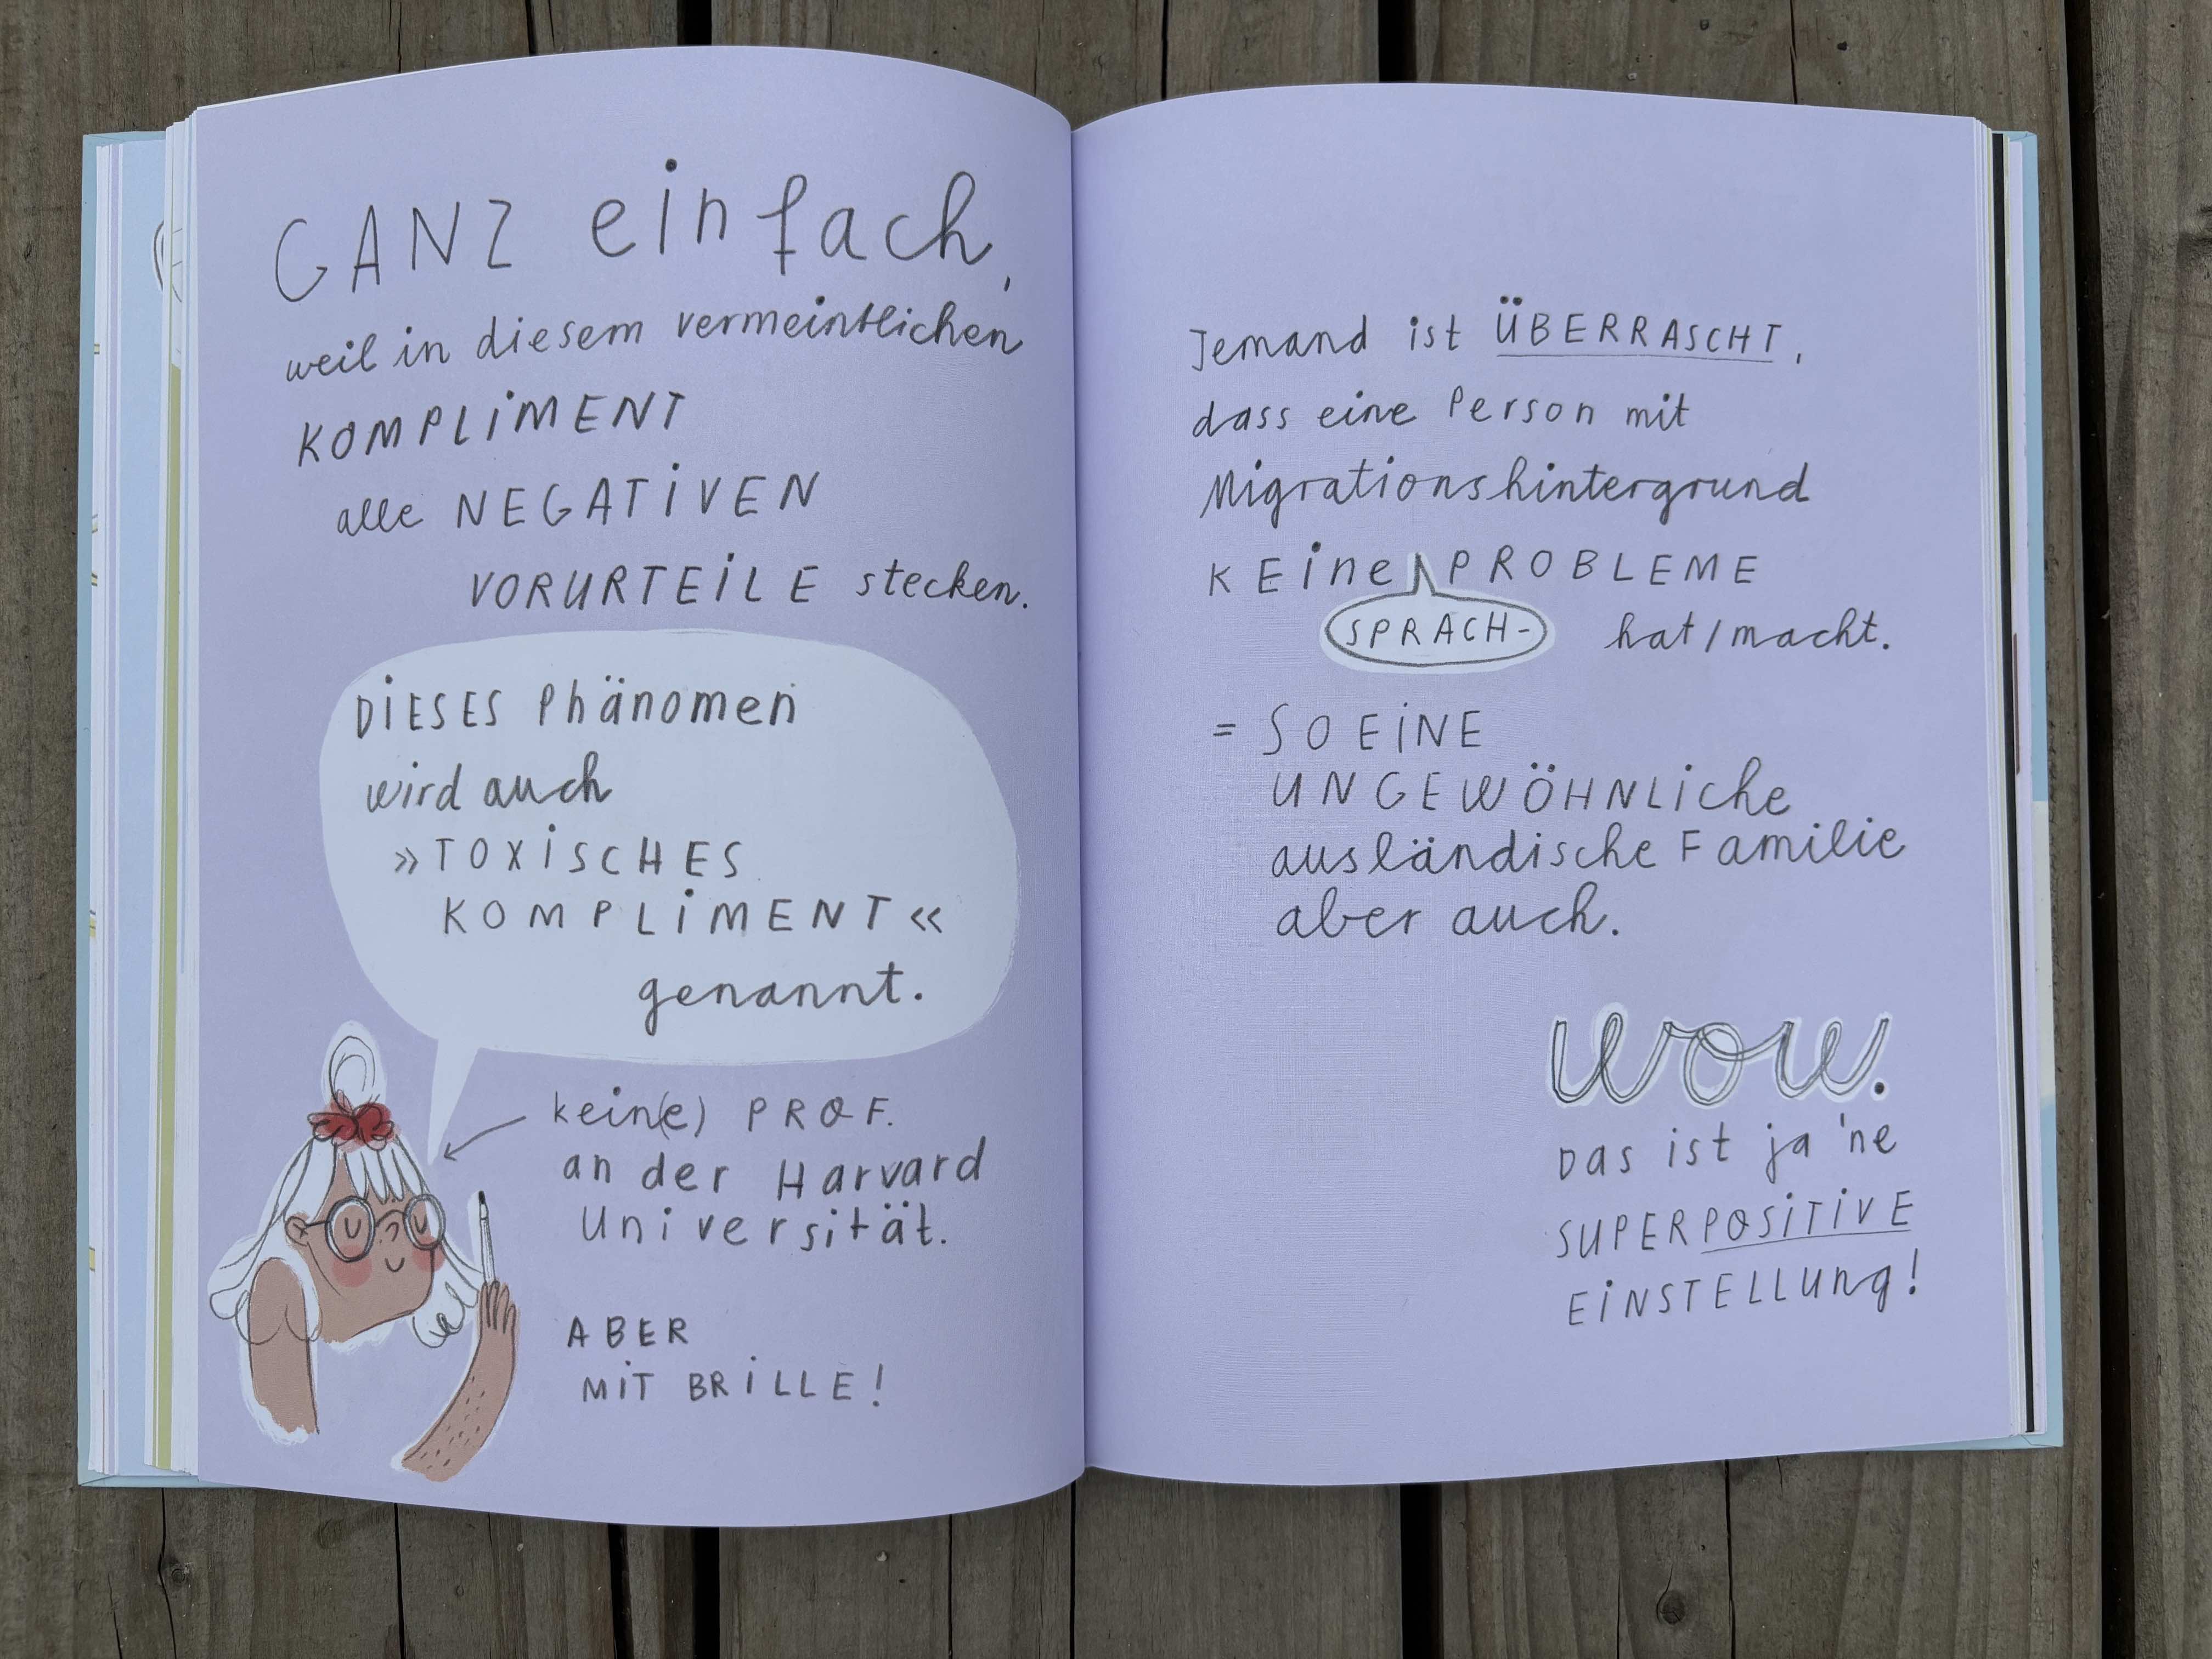 GANZ einfach,
weil in diesem vermeintlichen
KOMPLIMENT
alle NEGATIVEN
VORURTEILE stecken.
DIESES Phänomen
wird auch
»TOXISCHES
KOMPLIMENT«
genannt.
kein(e) PROF.
an der Harvard
Universität.
ABER
MIT BRILLE!
Jemand ist ÜBERRASCHT,
dass eine Person mit
Migrationshintergrund
KEine PROBLEME
SPRACH-
hat/macht.
= SO EINE
UNGEWÖHNLiche
ausländische Familie
aber auch.
wow.
Das ist ja 'ne
SUPERPOSITIVE
EINSTELLUng!